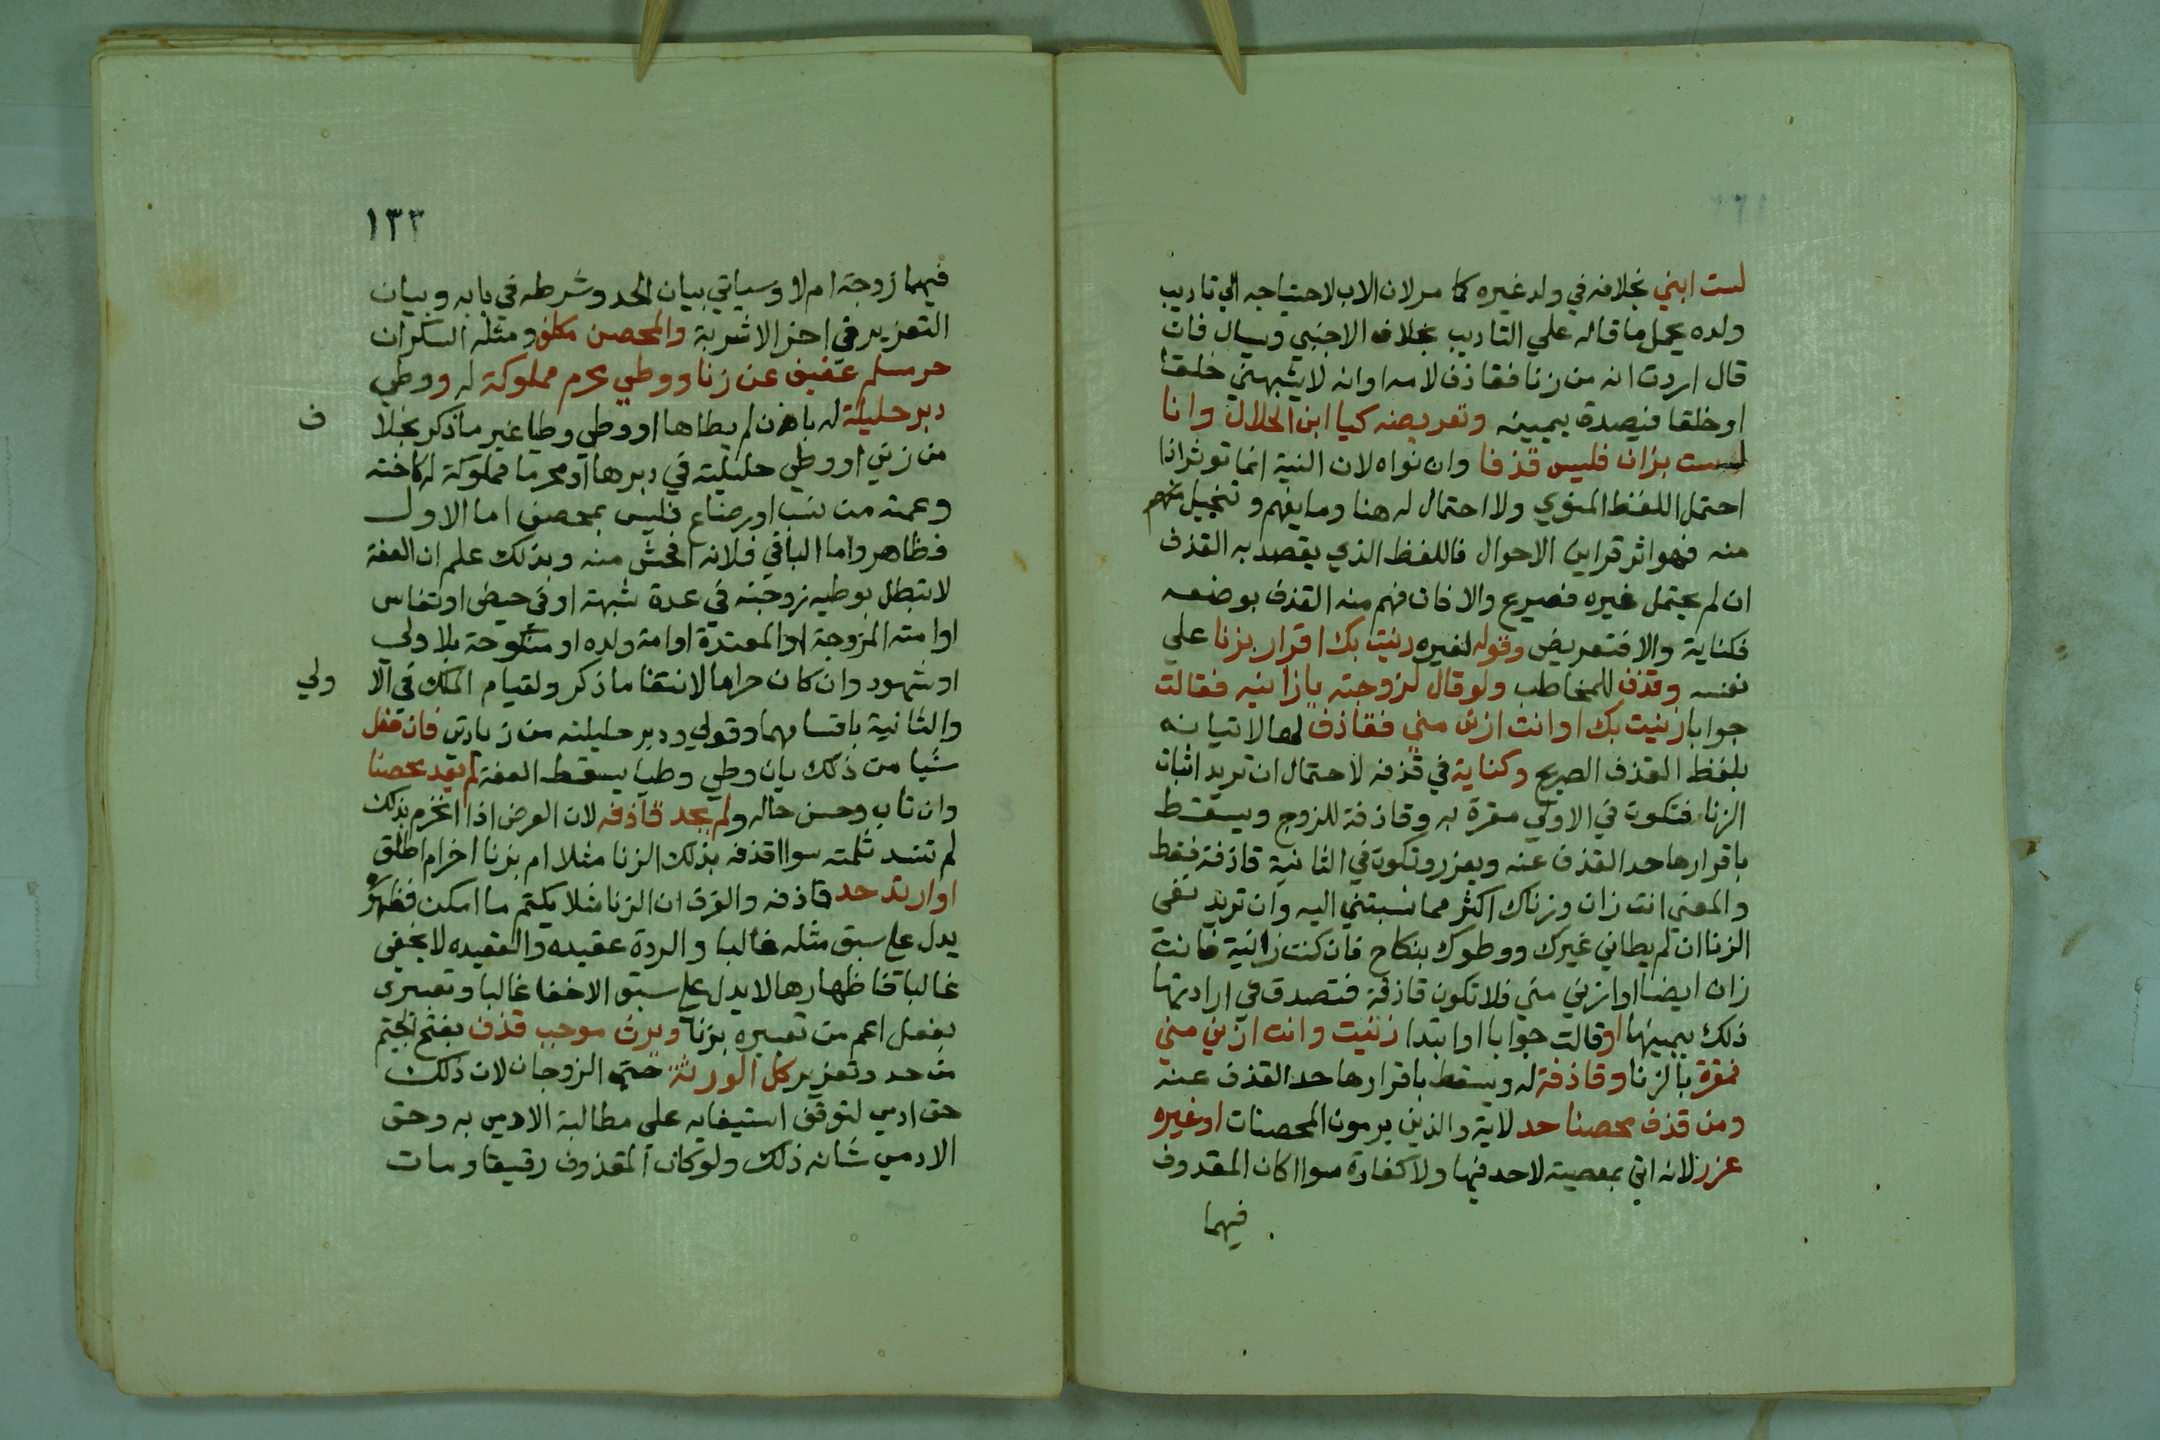 لست ابني بخلافه في ولد غيره كما مر لان الاب لاحتياجه الي تاديب
ولده يحمل ما قاله علي التاديب بخلاف الاجنبي ويسال فان
قال اردت انه من زنا فقاذف لامه او انه لا يشبهني خلقا
او خلقا فيصدق بيمينه وتعريضه كيا ابن الحلال وانا
لست بزان فليس قذفا وان نواه لان النية انما توثر اذا
احتمل اللفظ المنوي ولا احتمال له هنا وما يفهم وتخييل فهم
منه فهو اثر قراين الاحوال فاللفظ الذي يقصد به القذف
ان لم يحتمل غيره فصريح والا فان فهم منه القذف بوضعه
فكناية والا فتعريض وقوله لغيره زنيت بك اقرار بزنا علي
نفسه وقذف للمخاطب ولو قال لزوجته يا زانيه فقالت
جوابا زنيت بك او انت ازني مني فقاذف لها لاتيانه
بلفظ القذف الصريح وكناية في قذفه لاحتمال ان تريد اثبات
الزنا فتكون في الاولي مقرة به وقاذفة للزوج ويسقط
باقرارها حد القذف عنه ويعزر وتكون في الثانية قاذفة فقط
والمعني انت زان وزناك اكثر مما نسبتني اليه وان تريد نفي
الزنا ان لم يطاني غيرك ووطوك بنكاح فان كنت زانية فانت
زان ايضا او ازني مني فلا تكون قاذفة فتصدق في ارادتها
ذلك بيمينها او قالت جوابا او ابتدا زنيت وانت ازني مني
فمقرة بالزنا وقاذفة له ويسقط باقرارها حد القذف عنه
ومن قذف محصنا حد لاية والذين يرمون المحصنات او غيره
عزر لانه اتي بمعصية لا حد فيها ولا كفارة سوا اكان المقذوف
فيهما
١٣٣
فيهما زوجة ام لا وسياتي بيان الحد وشرطه في بابه وبيان
التعزير في اخر الاشربة والمحصن مكلف ومثله السكران
حر مسلم عفيف عن زنا ووطي محرم مملوكة له ووطي
دبر حليلة له بان لم يطاها او وطي وطيا غير ما ذكر بخلا
ف
من زني او وطي حليلته في دبرها او محرما مملوكة له كاخته
وعمته من نسب او رضاع فليس بمحصن اما الاول
فظاهر واما الباقي فلانه افحش منه وبذلك علم ان العفة
لا تبطل بوطيه زوجته في عدة شبهة او في حيض او نفاس
او امته المزوجة او المعتدة او امة ولده او منكوحة بلا ولي
او شهود وان كان حراما لانتفا ما ذكر ولقيام الملك في الا
ولي
والثانية باقسامهما وقولي ودبر حليلته من زيادتي فان فعل
شيا من ذلك بان وطي وطيا يسقط العفة لم يعد محصنا
وان تاب وحسن حاله ولم يحد قاذفه لان العرض اذا انخرم بذلك
لم تنسد ثلمته سوا اقذفه بذلك الزنا مثلا ام بزنا اخر ام اطلق
او ارتد حد قاذفه والفرق ان الزنا مثلا يكتم ما امكن فظهوره
يدل علي سبق مثله غالبا والردة عقيده والعقيده لا تخفي
غالبا فاظهارها لا يدل علي سبق الاخفا غالبا وتعبيري
بفعل اعم من تعبيره بزنا ويرث موجب قذف بفتح الجيم
من حد وتعزير كل الورثة حتي الزوجان لان ذلك
حق ادمي لتوقف استيفايه علي مطالبة الادمي به وحق
الادمي شانه ذلك ولو كان المقذوف رقيقا ومات